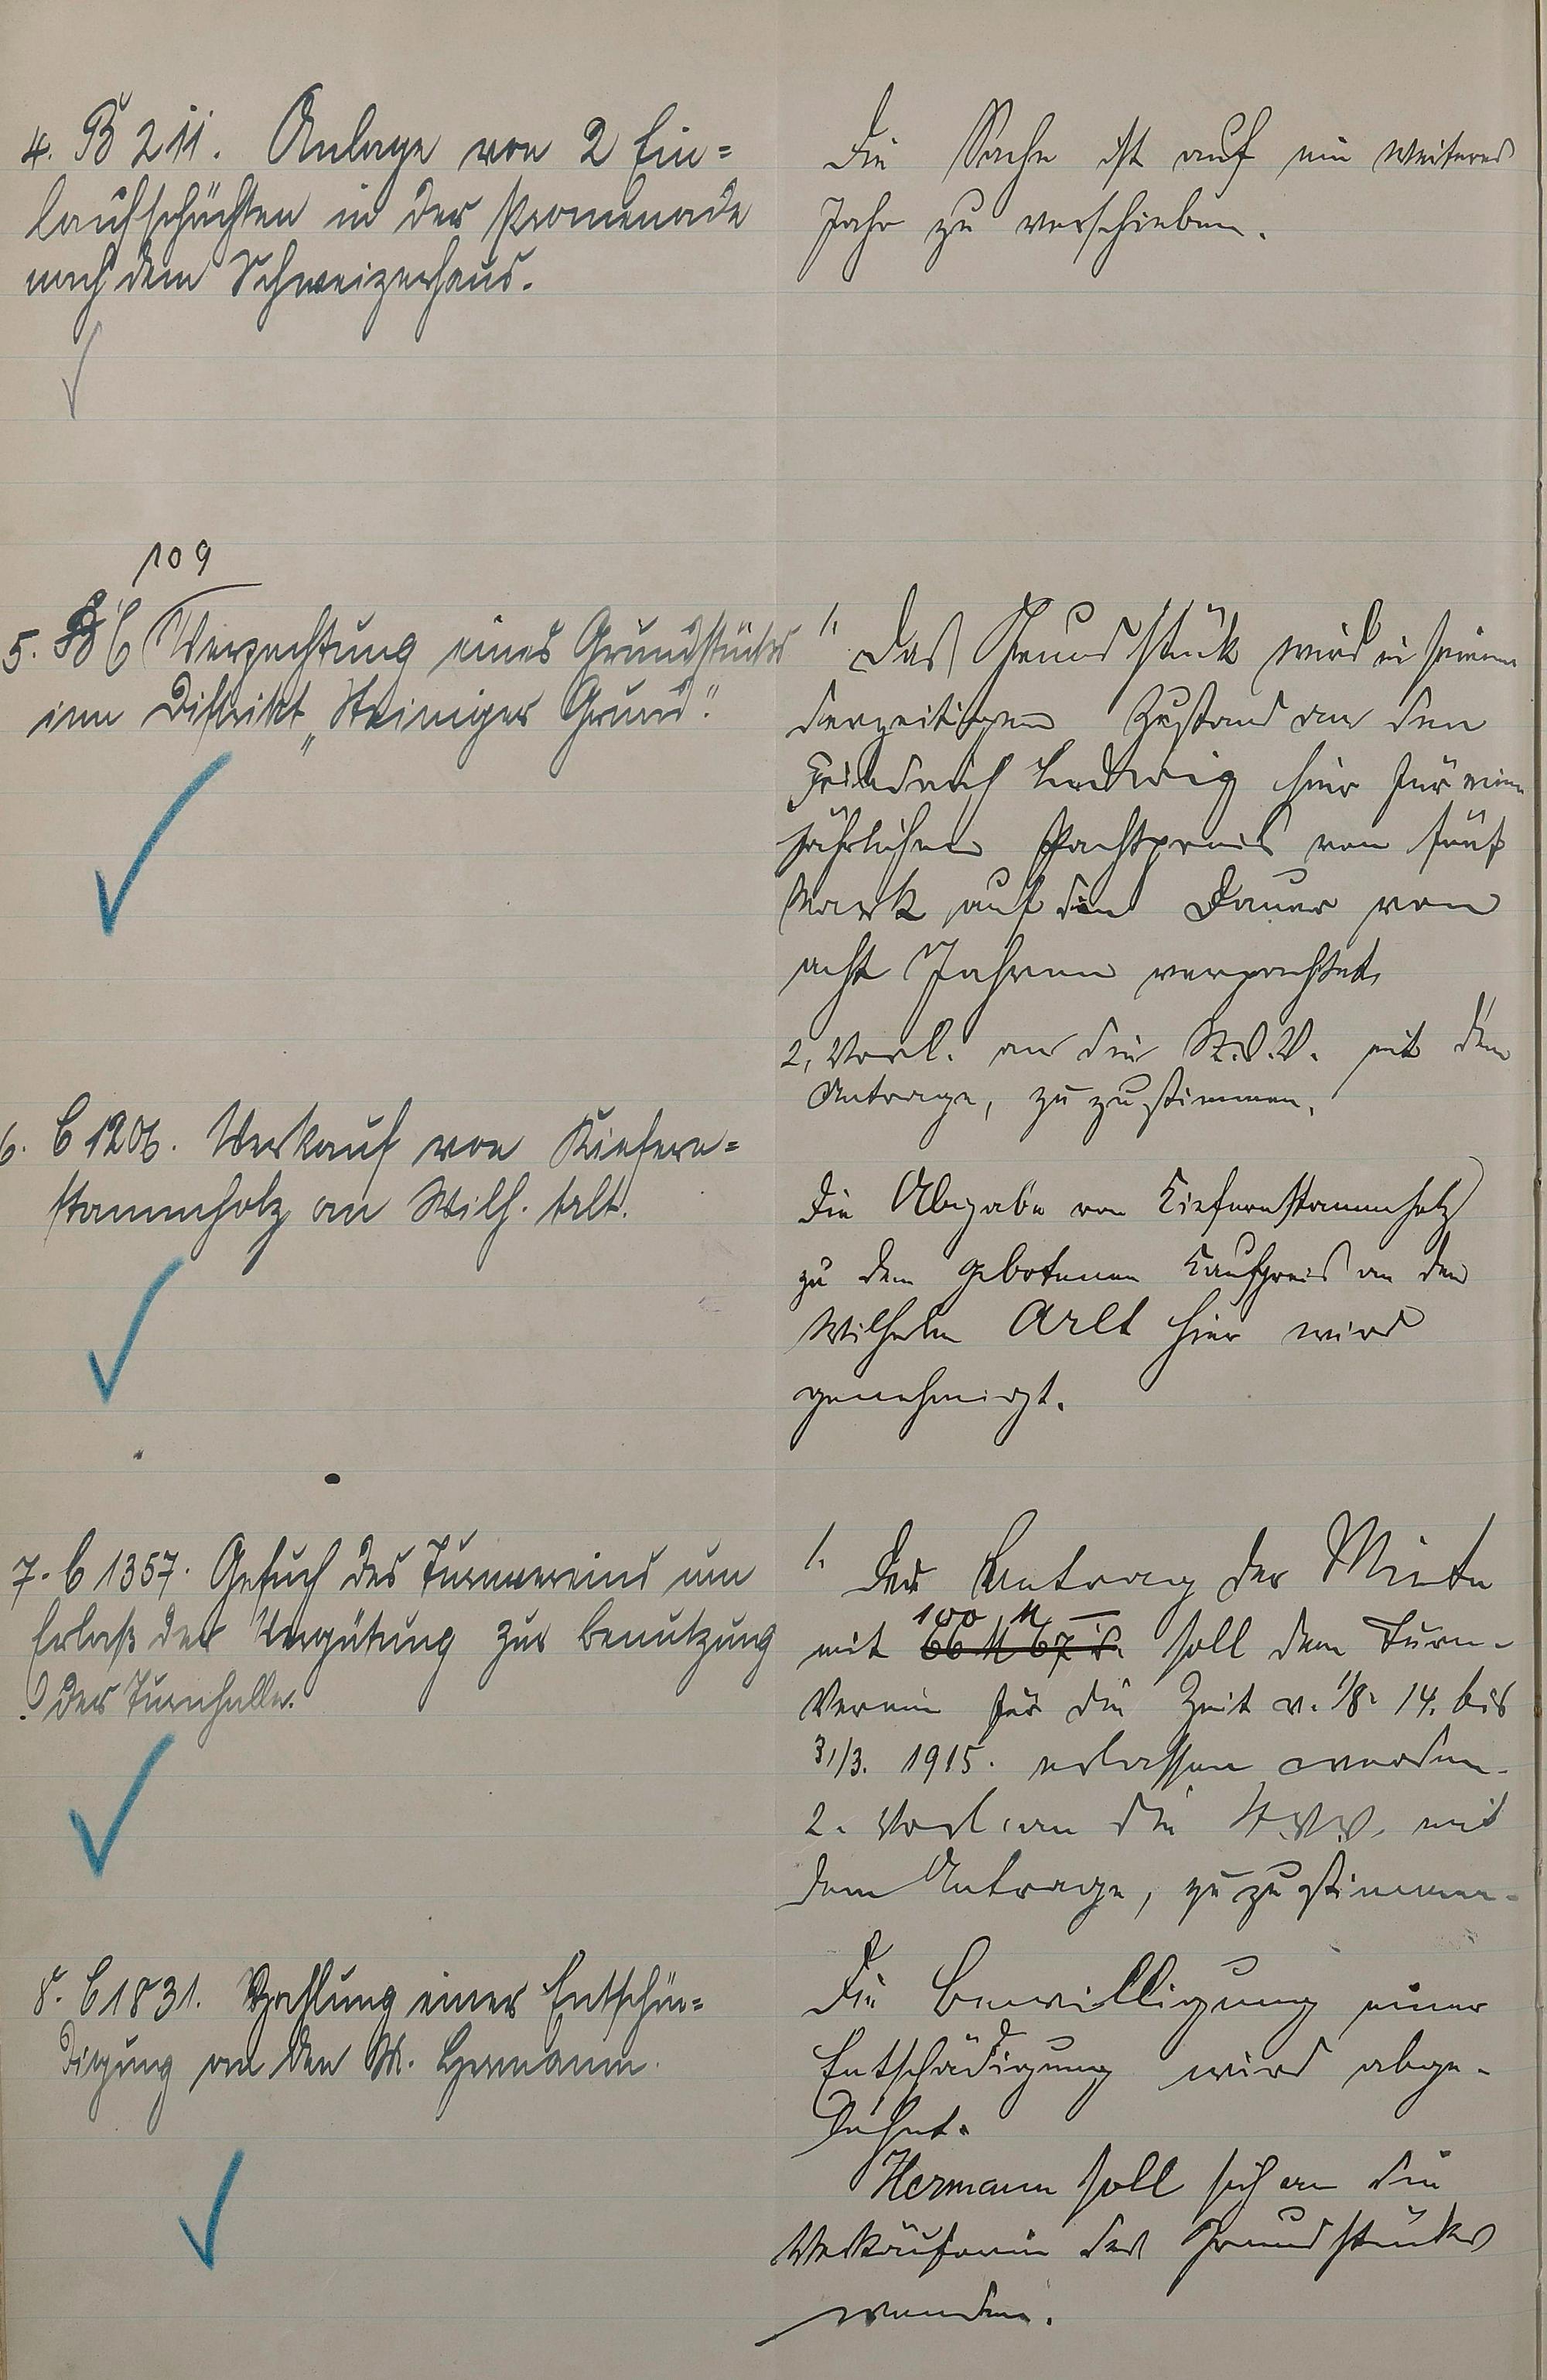 4. B 211. Anlage von 2 Ein=
laufschächten in der Promenade
nach dem Schweizerhaus.
Die Sache ist auf ein weiteres
Jahr zu verschieben.
109
5. C Verpachtung eines Grundstückes
im Distrikt „Steiniger Grund".
1. Das Grundstück wird in seinem
derzeitigen Zustand an den
Friedrich Ludwig hier für einen
jährlichen Pachtpreis von fünf
Mark auf die Dauer von
acht Jahren verpachtet.
2. Vorl. an die St.V.V. mit dem
Antrage, zuzustimmen.
6. C 1206. Verkauf von Kiefern=
stammholz an Wilh. Arlt.
Die Abgabe von Kiefernstammholz
zu dem gebotenen Kaufpreis an den
Wilhelm Arlt hier wird
genehmigt.
7. C 1357. Gesuch des Turnvereins um
Erlaß der Vergütung zur Benutzung
der Turnhalle.
1. Der Betrag der Miete
100 M —
mit 66 M 67 d. soll dem Turn-
Verein für die Zeit v. 1/8. 14. bis
31/3. 1915. erlassen werden.
2. Vorl. an die St.V.V. mit
dem Antrage, zuzustimmen.
8. C 1831. Zahlung einer Entschä=
digung an den W. Hermann.
Die Bewilligung einer
Entschädigung wird abge-
lehnt.
Hermann soll sich an die
Verkäuferin des Grundstückes
wenden.